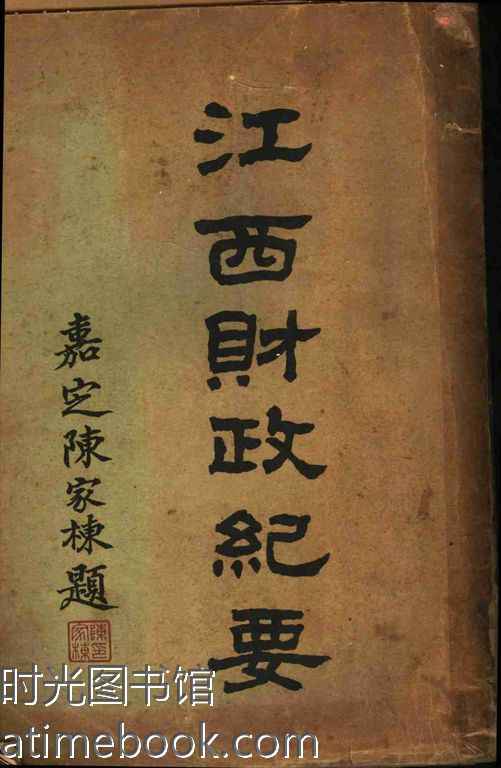 江西財政紀要
嘉定陳家棟題
陳家棟印
时光图书馆
atimebook.com